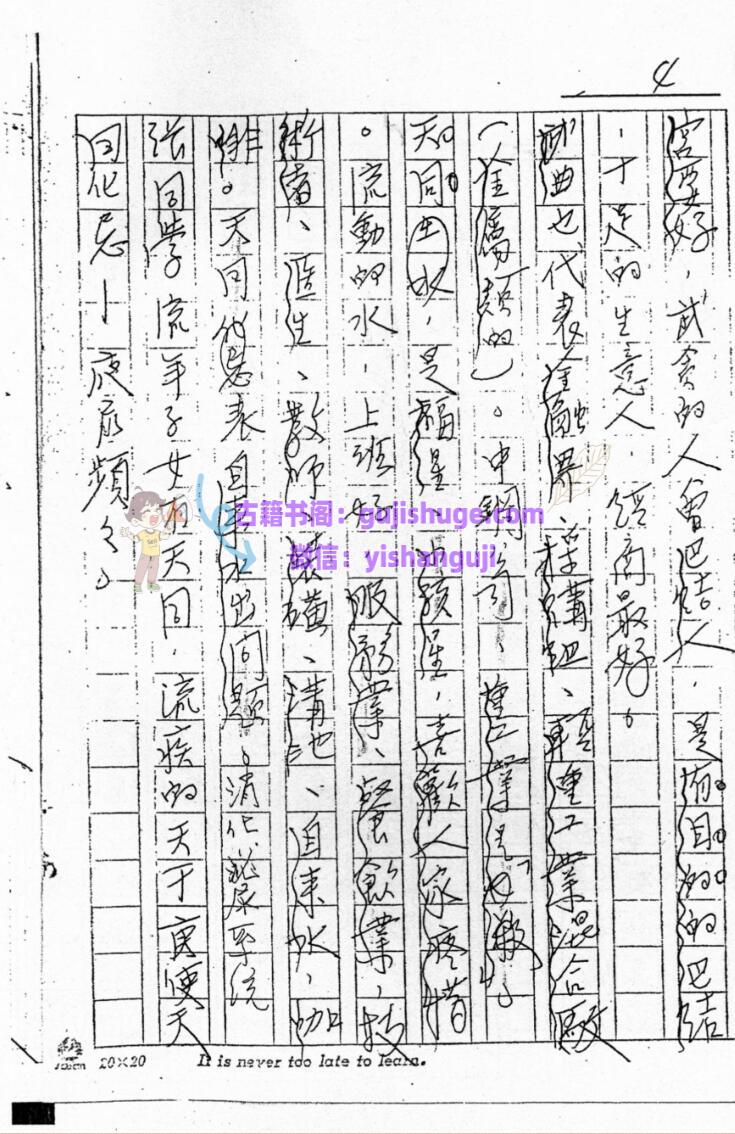 4
宮要好，武貪的人會巴結人，是有目的的巴結
，十足的生意人，經商最好。
武曲也代表金融界、機構、輕重工業混合廠
（金屬類的）。中鋼公司、重工業是七殺。
天同㊌水，是福星、小孩星，喜歡人家疼惜
。流動的水，上班好，服務業、餐飲業、技
術者、醫生、教師、裝潢、溝池、自來水、咖
啡。天同化忌表自來水出問題。消化泌尿系統
張同學流年子女宮天同，流疾的天干庚使天
同化忌—夜尿頻々。
古籍书阁：gujishuge.com
微信：yishanguji
20×20 It is never too late to learn.